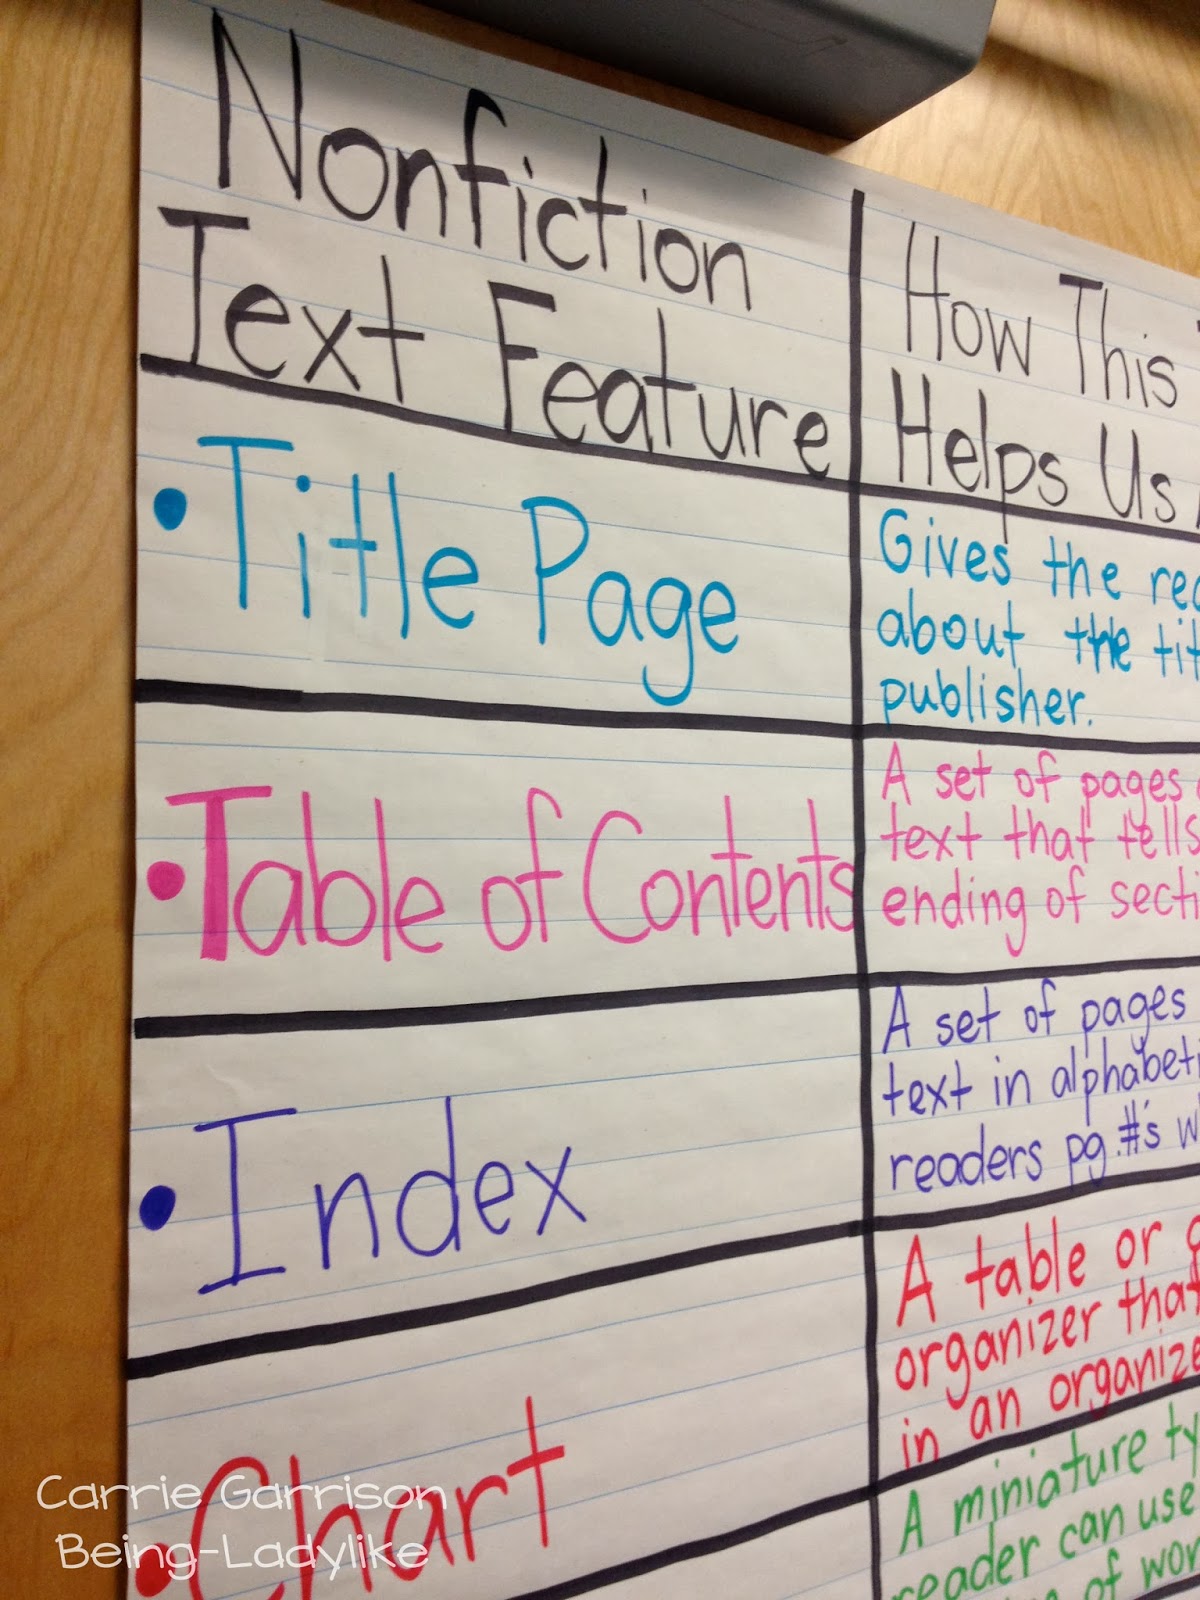 Nonfiction
Text Feature
How This
Helps Us
• Title Page
Gives the
about the
publisher.
• Table of Contents
A set of pages
text that tells
ending of
• Index
A set of pages
text in
readers pg.#'s
• Chart
A table or
organizer that
in an
A miniature
reader can use
of
Carrie Garrison
Being-Ladylike